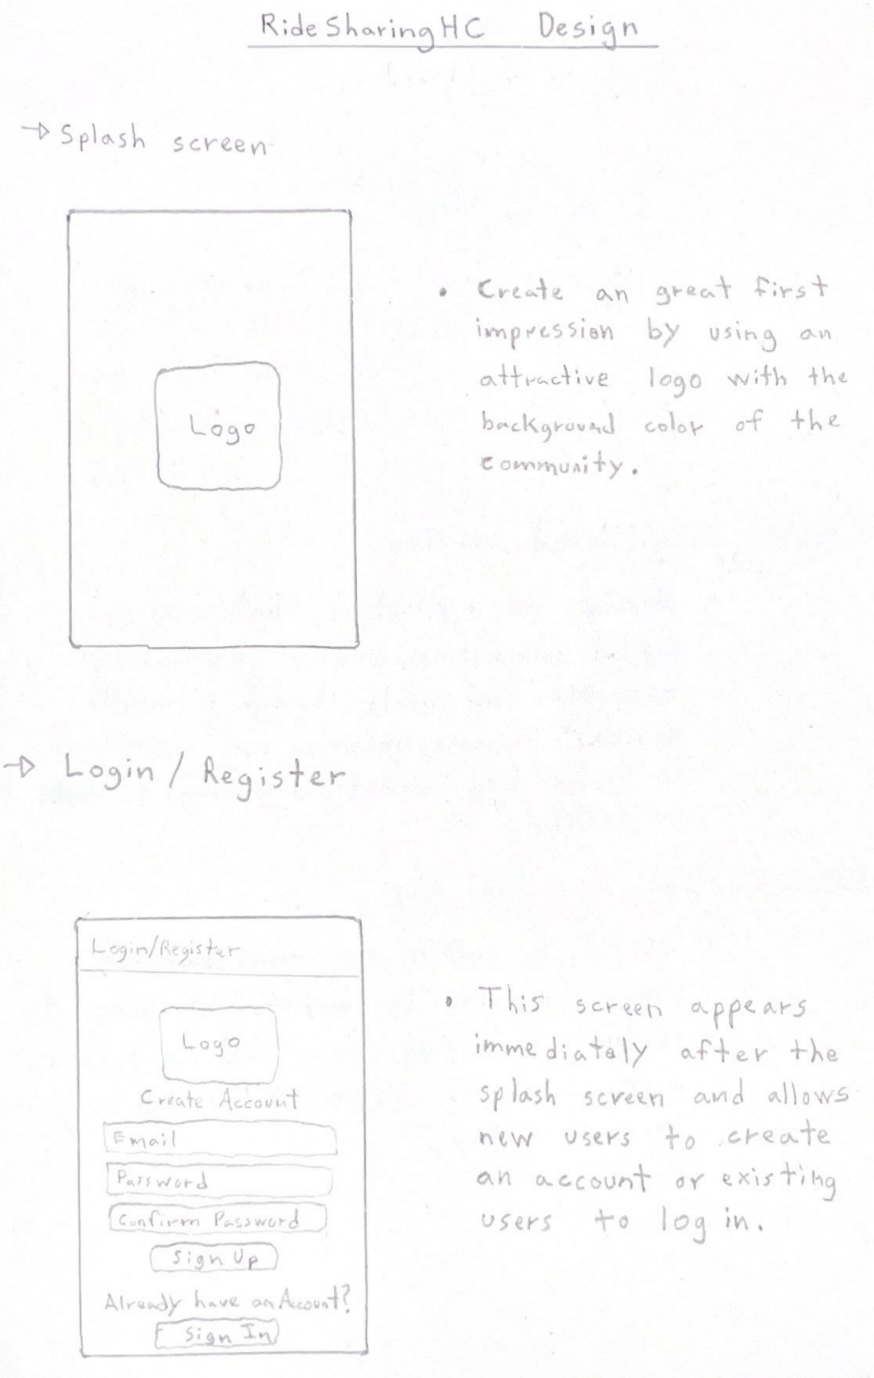 RideSharingHC Design
→ Splash screen
Logo
• Create an great first
impression by using an
attractive logo with the
background color of the
community.
→ Login / Register
Login/Register
Logo
Create Account
Email
Password
Confirm Password
Sign Up
Already have an Account?
Sign In
• This screen appears
immediately after the
splash screen and allows
new users to create
an account or existing
users to log in.